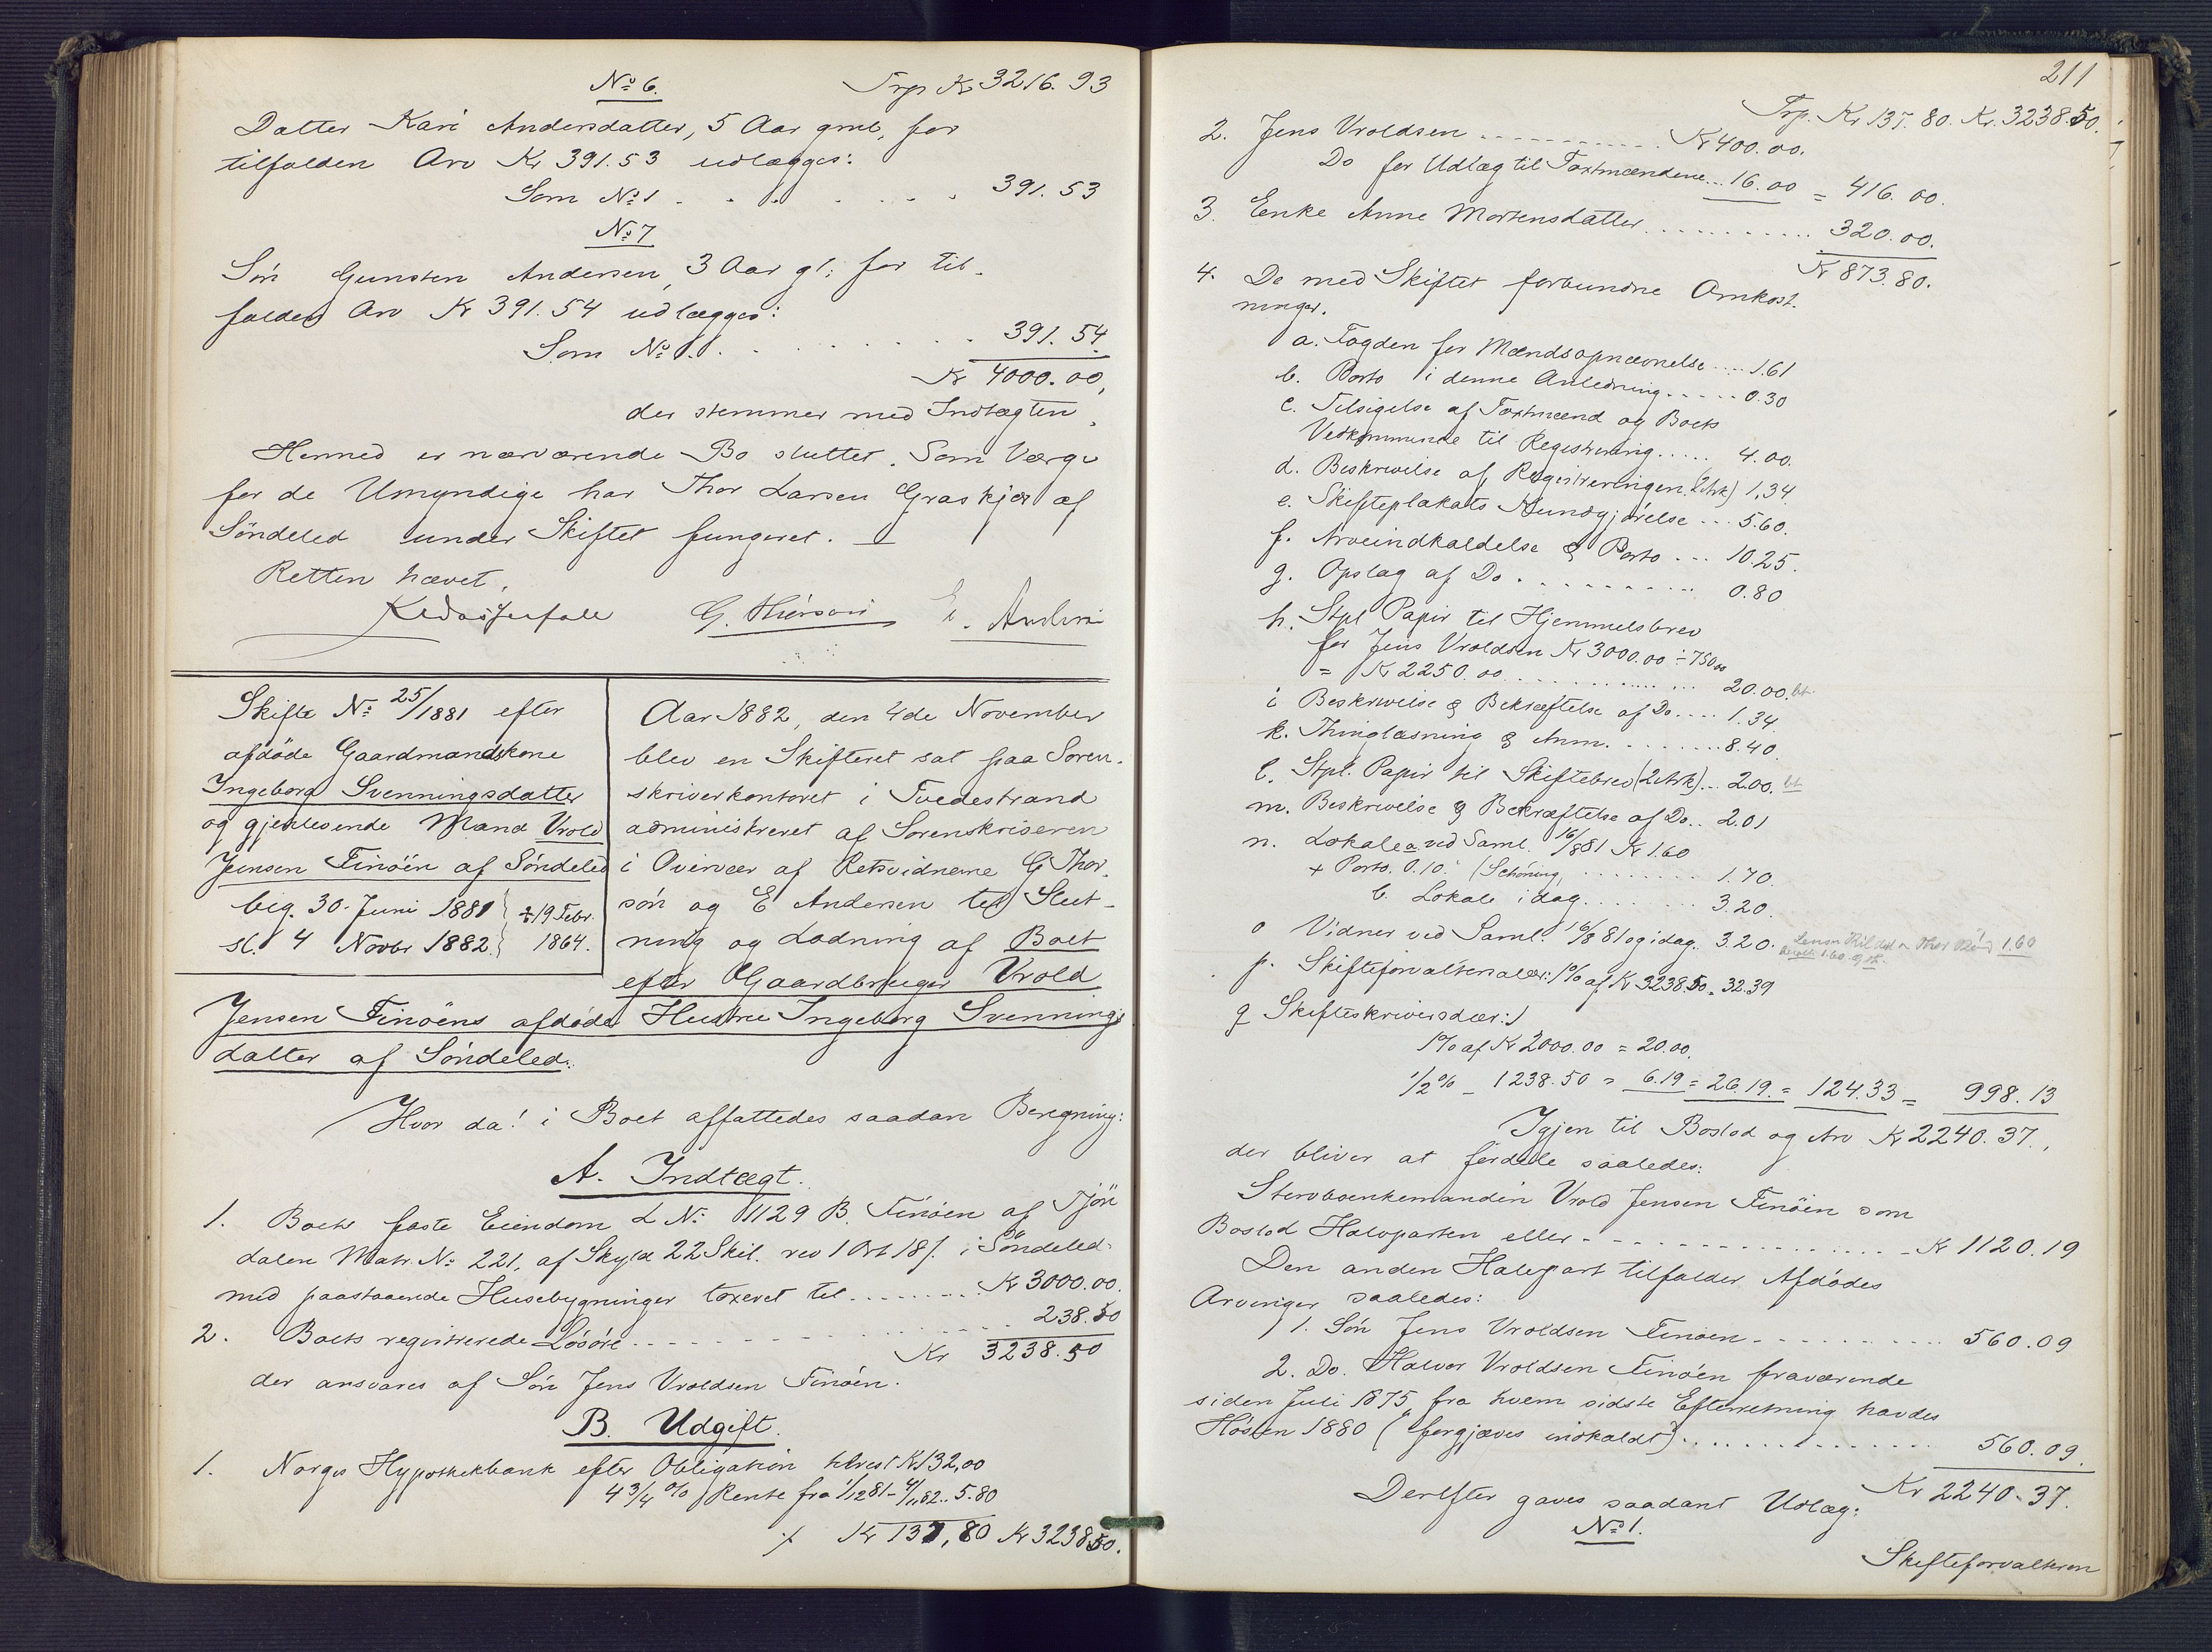 No 6. Trp Kr 3216.93
Datter Kari Andersdatter, 5 Aar gml, for
tilfalden Arv Kr 391.53 udlægges:
Som No 1 . . . . . . 391.53
No 7
Søn Gunsten Andersen, 3 Aar gl. for til-
falden Arv Kr 391.54 udlægges:
Som No 1. . . . . . . 391.54
Kr 4000.00,
der stemmer med Indtægten.
Hermed er nærværende Bo sluttet. Som Værge
for de Umyndige har Thor Larsen Graskjær af
Søndeled under Skiftet fungeret. —
Retten hævet.
G. Thorson E. Andersen
Skifte No 25/1881 efter
afdøde Gaardmandskone
Ingeborg Svenningsdatter
og gjenlevende Mand Vrold
Jensen Finøen af Søndeled
beg. 30. Juni 1881 } ‡ 19 Febr.
sl. 4 Novbr 1882. } 1864.
Aar 1882, den 4de November
blev en Skifteret sat paa Soren-
skriverkontoret i Tvedestrand
administreret af Sorenskriveren
i Overvær af Retsvidnerne G Thor-
søn og E Andersen til Slut-
ning og Lodning af Boet
efter Gaardbruger Vrold
Jensen Finøens afdøde Hustru Ingeborg Svennings
datter af Søndeled.
Hvor da! i Boet affattedes saadan Beregning:
A. Indtægt.
1. Boets faste Eiendom L No 1129 B. Finøen af Tjøn
dalen Matr. No 221, af Skyld 22 Skil. rev 1 Ort 18 /. i Søndeled
med paastaaende Husebygninger taxeret til . . . . . Kr 3000.00.
2. Boets registrerede Løsøre . . . . . . . 238.50
Kr 3238.50
der ansvares af Søn Jens Vroldsen Finøen.
B. Udgift.
1. Norges Hypothekbank efter Obligation tilrest Kr 132,00
4 3/4 % Rente fra 1/12 81 - 4/11 82 .. 5.80
Kr 137,80 Kr 3238.50.
211
Trp. Kr 137.80. Kr. 3238.50.
2. Jens Vroldsen . . . . . . . Kr 400.00.
Do for Udlæg til Taxtmændene .. 16.00 = 416.00.
3. Enke Anne Mortensdatter . . . . . . . 320.00.
Kr 873.80.
4. De med Skiftet forbundne Omkost-
ninger.
a. Fogden for Mændsopnævnelse .... 1.61
b. Porto i denne Anledning . . . . . 0.30
c. Tilsigelse af Taxtmænd og Boets
Vedkommende til Registrering ..... 4.00.
d. Beskrivelse af Registreringen (2 Ark) 1,34
e. Skifteplakats Kundgjørelse ... 5.60.
f. Arveindkaldelse & Porto ... 10.25.
g. Opslag af Do . . . . . . . . 0.80
h. Stpl Papir til Hjemmelsbrev
for Jens Vroldsen Kr 3000.00 ÷ 750.00
= Kr 2250.00 . . . . . . . . 20.00. bt.
i Beskrivelse & Bekræftelse af Do .... 1.34.
k. Thinglæsning & Anm. . . . . . . . 8.40.
l. Stpl. Papir til Skiftebrev (2 Ark) .. 2.00. bt
m. Beskrivelse & Bekræftelse af Do .. 2.01
n. Lokale a. ved Saml. 16/8 81 Kr 1.60
+ Porto. 0.10. (Schöning, . . . . . . . . 1.70.
b. Lokale i dag . . . . . . . 3.20.
o Vidner ved Saml. 16/8 81 og i dag. 3.20. 1.60
p. Skifteforvaltersalær: 1% af Kr 3238.50 = 32.39
q Skifteskriversalær:
1% af Kr 2000.00 = 20.00.
1/2 % - 1238.50 = 6.19 = 26.19. = 124.33 = 998.13
Igjen til Boslod og Arv Kr 2240.37.,
der bliver at fordele saaledes:
Stervboenkemanden Vrold Jensen Finøen som
Boslod Halvparten eller . . . . . . . . Kr 1120.19
Den anden Halvpart tilfalder Afdødes
Arvinger saaledes:
1. Søn Jens Vroldsen Finøen . . . . . . . . 560.09
2. Do. Halvor Vroldsen Finøen fraværende
siden Juli 1875, fra hvem sidste Efterretning havdes
Høsten 1880 (forgjæves indkaldt) . . . . . . . . 560.09.
Kr 2240.37.
Derefter gaves saadant Udlæg:
No 1.
Skifteforvalteren